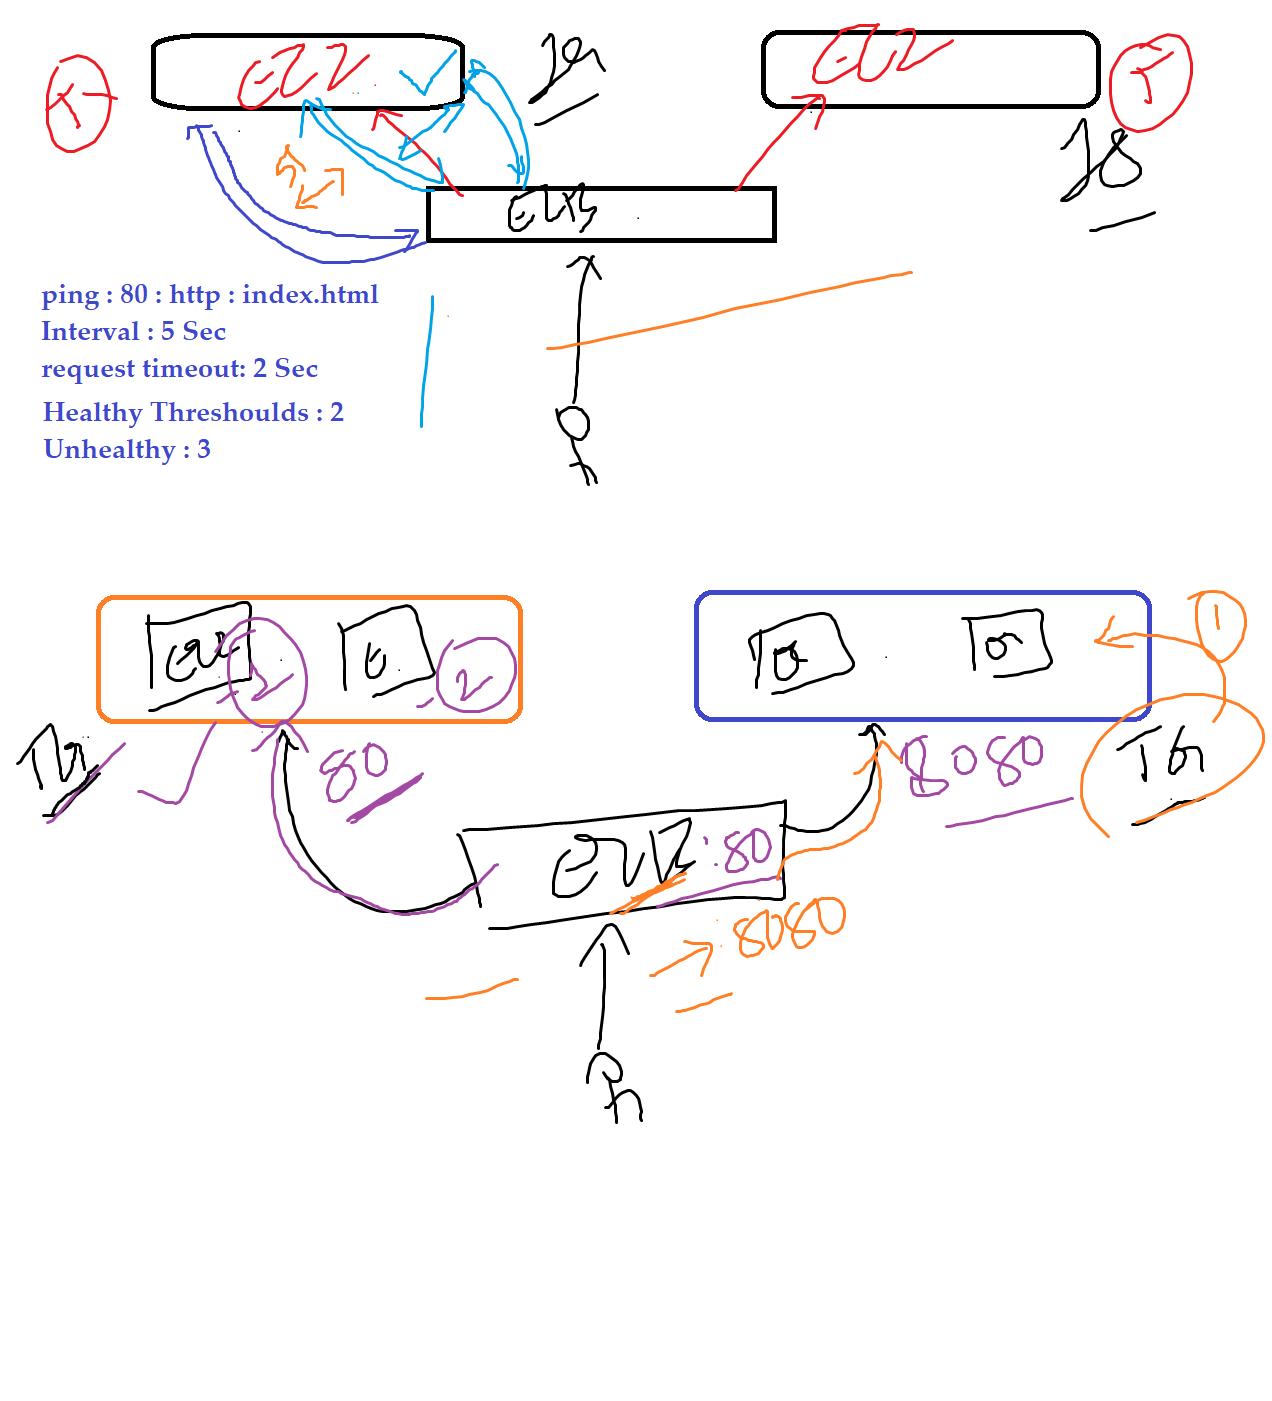 EC2
EC2
ELB
ping : 80 : http : index.html
Interval : 5 Sec
request timeout: 2 Sec
Healthy Threshoulds : 2
Unhealthy : 3
1
2
80
8080
TG
ELB :80
8080